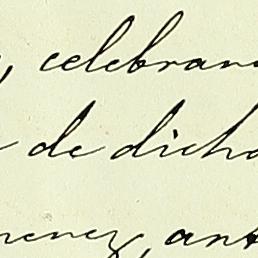 , celebran
de dicho
menez, ant